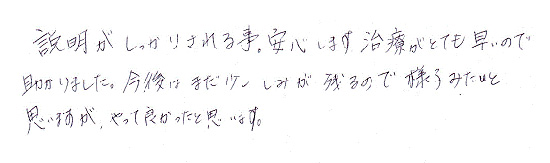 説明がしっかりされる事。安心します 治療がとても早いので
助かりました。今後は まだ少し しみが 残るので 様子みたいと
思いますが、やって良かったと思います。